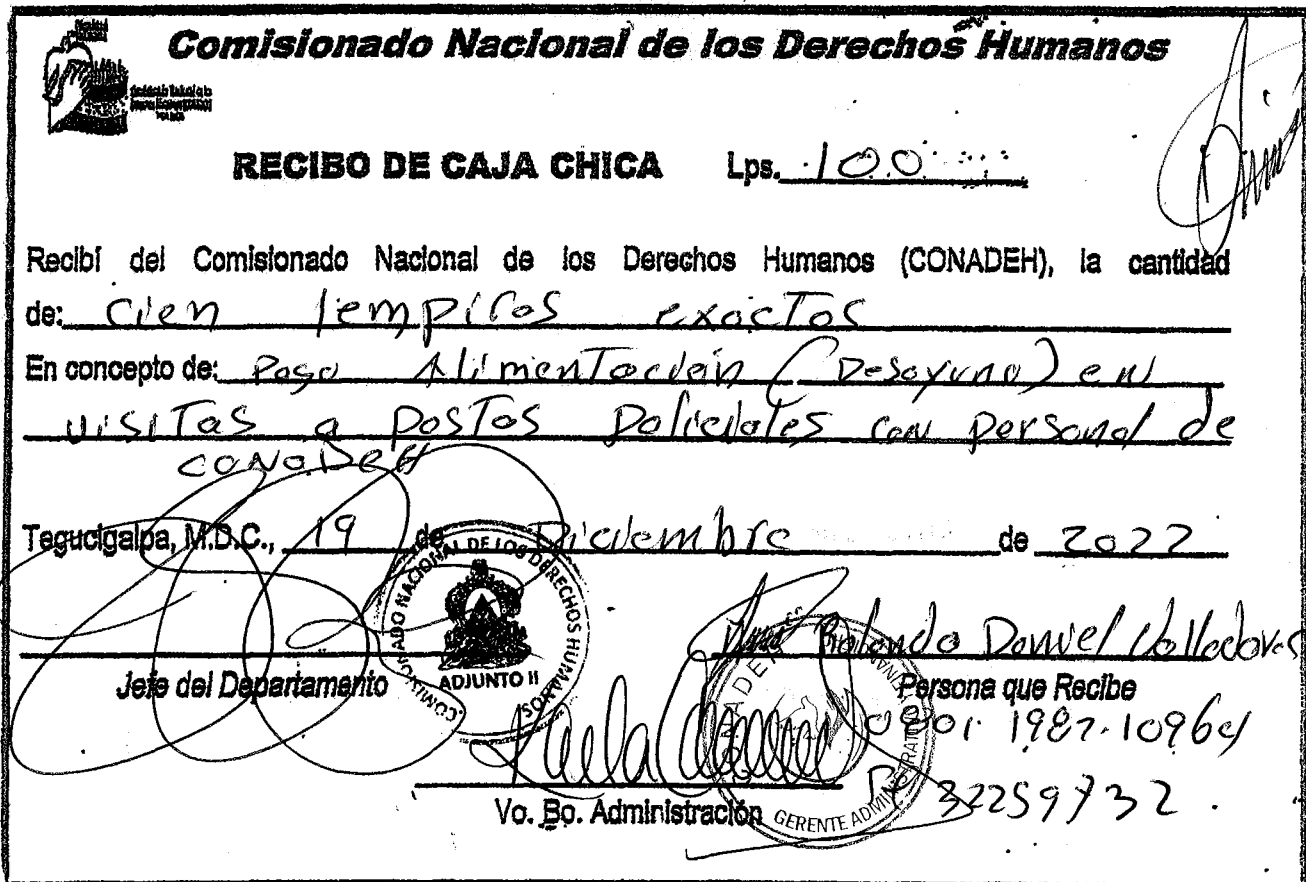 Comisionado Nacional de los Derechos Humanos
RECIBO DE CAJA CHICA Lps. 100
Recibí del Comisionado Nacional de los Derechos Humanos (CONADEH), la cantidad
de: Cien lempiras exactos
En concepto de: Pago Alimentación (Desayuno) en
visitas a postas Policiales con personal de
CONADEH
Tegucigalpa, M.D.C., 19 de Diciembre de 2022
COMISIONADO NACIONAL DE LOS DERECHOS HUMANOS
ADJUNTO II
Rolando Daniel Valladares
Jefe del Departamento Persona que Recibe
0801-1987-10964
32259732.
Vo. Bo. Administración
GERENTE ADMINISTRATIVO